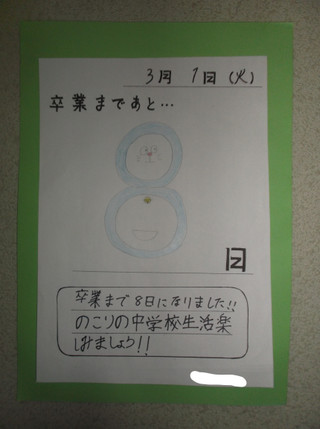 3月 1日(火)
卒業まであと…
8
日
卒業まで8日になりました!!
のこりの中学校生活楽
しみましょう!!